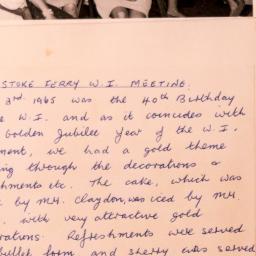 STOKE FERRY W.I. MEETING.
3rd. 1965 was the 40th Birthday
W.I. and as it coincides with
Golden Jubilee Year of the W.I.
ment, we had a gold theme
ing through the decorations &
hments etc. The cake, which was
by Mrs. Claydon, was iced by Mrs.
with very attractive gold
rations. Refreshments were served
buffet form and sherry was served